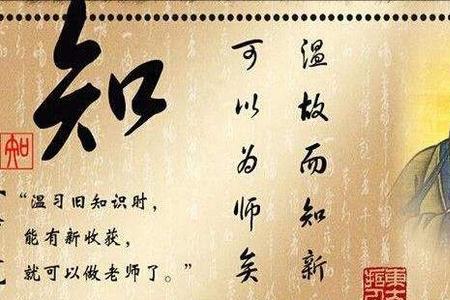 知
知
温故而知新
可以为师矣
“温习旧知识时，
能有新收获，
就可以做老师了。”